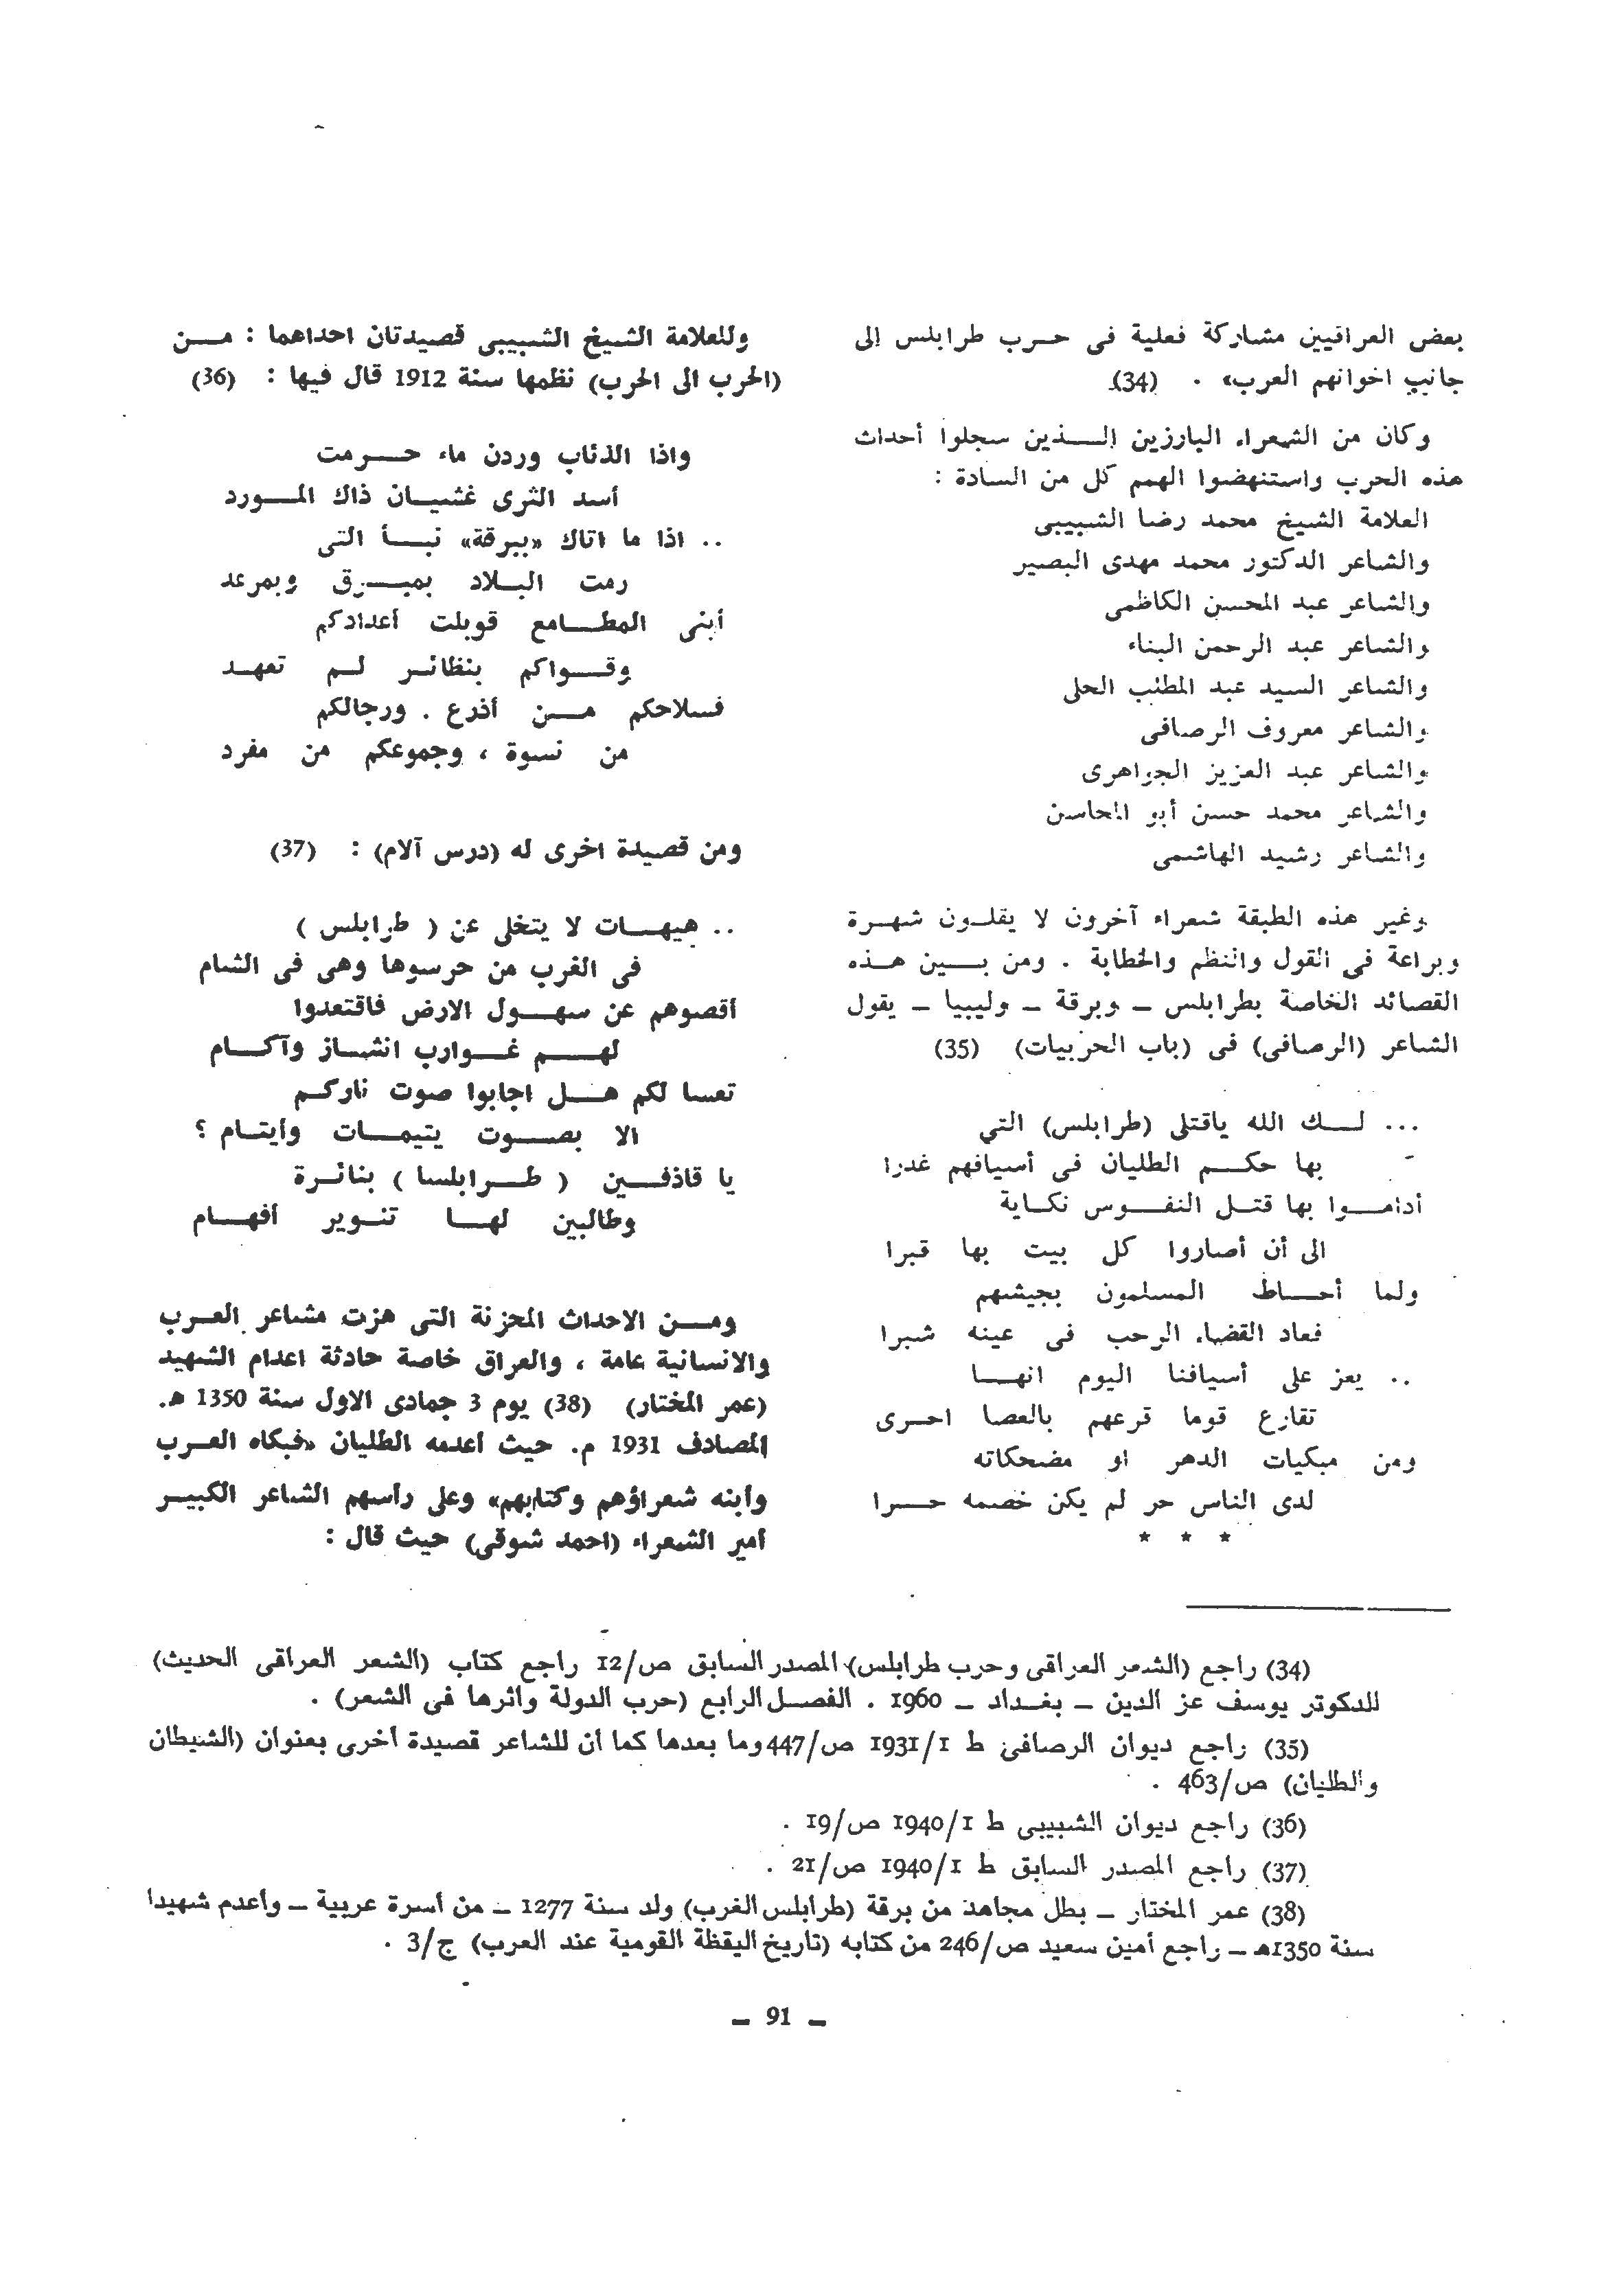 بعض العراقيين مشاركة فعلية فى حرب طرابلس إلى
جانب اخوانهم العرب» . (34)
وكان من الشعراء البارزين الذين سجلوا أحداث
هذه الحرب واستنهضوا الهمم كل من السادة :
العلامة الشيخ محمد رضا الشبيبى
والشاعر الدكتور محمد مهدى البصير
والشاعر عبد المحسن الكاظمى
والشاعر عبد الرحمن البناء
والشاعر السيد عبد المطلب الحلى
والشاعر معروف الرصافى
والشاعر عبد العزيز الجواهرى
والشاعر محمد حسن أبو المحاسن
والشاعر رشيد الهاشمى
وغير هذه الطبقة شعراء آخرون لا يقلون شهرة
وبراعة فى القول والنظم والخطابة . ومن بين هذه
القصائد الخاصة بطرابلس – وبرقة – وليبيا – يقول
الشاعر (الرصافى) فى (باب الحربيات) (35)
... لك الله ياقتلى (طرابلس) التي
بها حكم الطليان فى أسيافهم غدرا
أداموا بها قتل النفوس نكاية
الى أن أصاروا كل بيت بها قبرا
ولما أحاط المسلمون بجيشهم
فعاد الفضاء الرحب فى عينه شبرا
.. يعز على أسيافنا اليوم انها
تقارع قوما قرعهم بالعصا احرى
ومن مبكيات الدهر او مضحكاته
لدى الناس حر لم يكن خصمه حرا
* * *
وللعلامة الشيخ الشبيبى قصيدتان احداهما : من
(الحرب الى الحرب) نظمها سنة 1912 قال فيها : (36)
واذا الذئاب وردن ماء حرمت
أسد الثرى غشيان ذاك المورد
.. اذا ما اتاك «ببرقة» نبأ التى
رمت البلاد بمبرق وبمرعد
أبنى المطامع قوبلت أعدادكم
وقواكم بنظائر لم تعهد
فسلاحكم من أذرع . ورجالكم
من نسوة ، وجموعكم من مفرد
ومن قصيدة اخرى له (درس آلام) : (37)
.. هيهات لا يتخلى عن ( طرابلس )
فى الغرب من حرسوها وهى فى الشام
أقصوهم عن سهول الارض فاقتعدوا
لهم غوارب انشاز وآكام
تعسا لكم هل اجابوا صوت ناركم
الا بصوت يتيمات وأيتام ؟
يا قاذفين ( طرابلسا ) بنائرة
وطالبين لها تنوير أفهام
ومن الاحداث المحزنة التى هزت مشاعر العرب
والانسانية عامة ، والعراق خاصة حادثة اعدام الشهيد
(عمر المختار) (38) يوم 3 جمادى الاول سنة 1350 هـ.
المصادف 1931 م. حيث أعدمه الطليان «فبكاه العرب
وأبنه شعراؤهم وكتابهم» وعلى رأسهم الشاعر الكبير
أمير الشعراء (احمد شوقى) حيث قال :
(34) راجع (الشعر العراقى وحرب طرابلس) المصدر السابق ص/12 راجع كتاب (الشعر العراقى الحديث)
للدكوتر يوسف عز الدين – بغداد – 1960 . الفصل الرابع (حرب الدولة واثرها فى الشعر) .
(35) راجع ديوان الرصافى ط 1/1931 ص/447 وما بعدها كما أن للشاعر قصيدة أخرى بعنوان (الشيطان
والطليان) ص/463 .
(36) راجع ديوان الشبيبى ط 1/1940 ص/19 .
(37) راجع المصدر السابق ط 1/1940 ص/21 .
(38) عمر المختار – بطل مجاهد من برقة (طرابلس الغرب) ولد سنة 1277 – من أسرة عربية – وأعدم شهيدا
سنة 1350هـ – راجع أمين سعيد ص/246 من كتابه (تاريخ اليقظة القومية عند العرب) ج/3 .
– 91 –